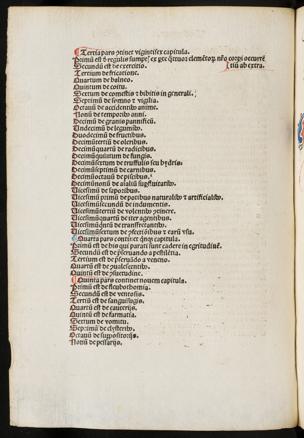 Tertia pars ꝯtinet vigintisex capitula.
Primũ est ꝺ regulis sumptꝭ ex
corpi occurrẽ
Secundũ est de exercitio.
tiũ ab extra.
Tertium de fricatione.
Quartum de balneo.
Quintum de coitu.
Sextum de comestis & bibitis in generali.
Septimũ de somno & vigilia.
Octauũ de accidentibꝰ anime.
Nonũ de
Decimũ de granis panificiũ.
Undecimũ de leguminibꝰ.
Duodecimũ de fructibus.
Decimũtertiũ de oleribus.
Decimũquartũ de radicibus.
Decimũquintum de fungis.
Decimũsextum de
Decimũseptimũ de carnibus.
Decimũoctauũ de piscibus.
Decimũnonũ de aialiũ
Vicesimũ de saporibus.
Vicesimũ primũ de potibus naturalibꝰ & artificialibꝰ.
Vicesimũsecundũ de indumentis.
Vicesimũtertiũ de volentibꝰ
Vicesimũquartũ de iter agentibus.
Vicesimũquintũ de transfretantibꝰ.
Vicesimũsextum de
Quarta pars continet capitula.
Primũ est de his qui parati sunt cadere in egritudinẽ.
Secundũ est de p̱seruando a pestilẽtia.
Tertium est de p̱seruãdo a veneno.
Quartũ est de ꝯualescentibꝰ.
Quintũ est de
Quinta pars continet nouem capitula.
Primũ est de fleubothomia.
Secundũ est de ventosis.
Tertiũ est de sanguisugis.
Quartũ est de cauterijs.
Quintũ est de farmatia.
Sextum de vomitu.
Septimũ de clysteribꝰ.
Octauũ de suppositorijs.
Nonũ de pessarijs.